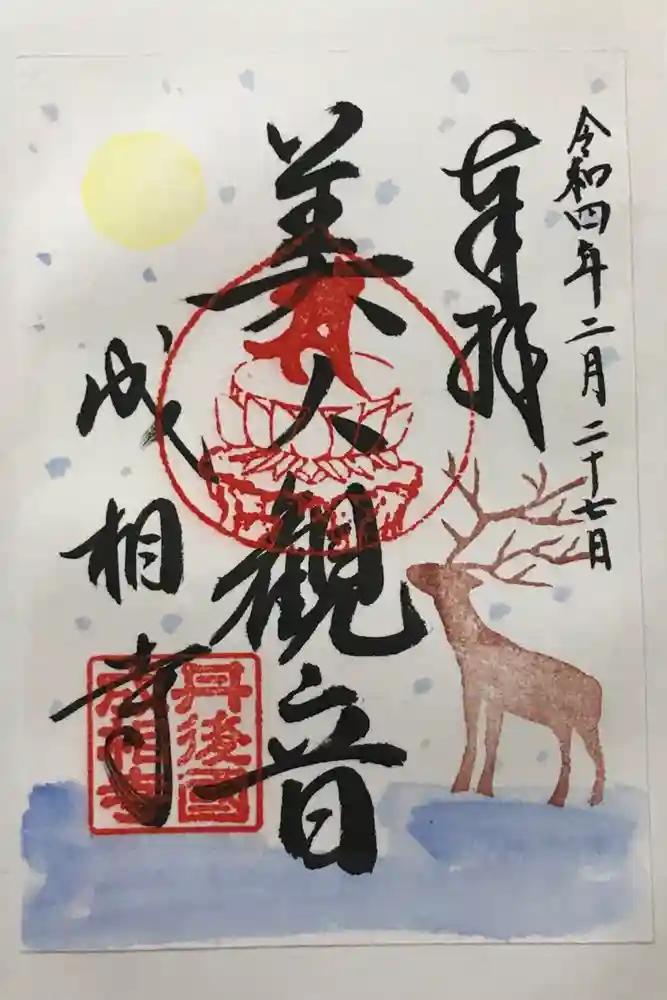 令和四年二月二十七日
奉拝
美人観音
成相寺
丹後國
成相寺